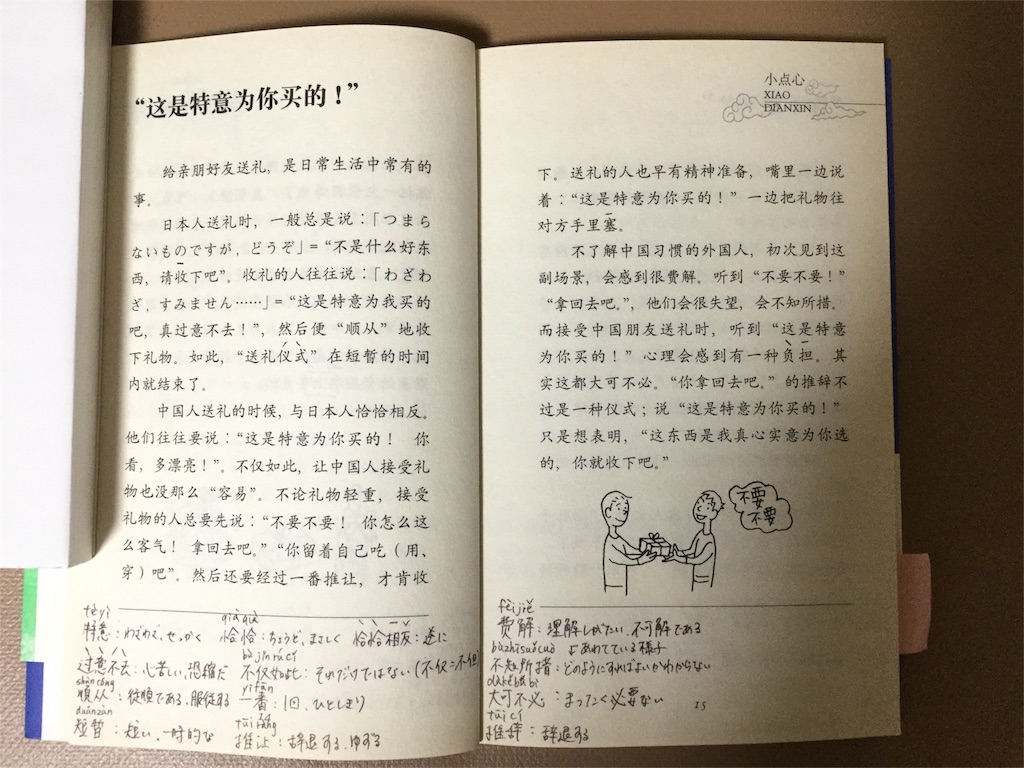 “这是特意为你买的！”
给亲朋好友送礼，是日常生活中常有的
事。
日本人送礼时，一般总是说：「つまら
ないものですが，どうぞ」＝“不是什么好东
西，请收下吧”。收礼的人往往说：「わざわ
ざ，すみません……」＝“这是特意为我买的
吧，真过意不去！”，然后便“顺从”地收
下礼物。如此，“送礼仪式”在短暂的时间
内就结束了。
中国人送礼的时候，与日本人恰恰相反。
他们往往要说：“这是特意为你买的！ 你
看，多漂亮！”。不仅如此，让中国人接受礼
物也没那么“容易”。不论礼物轻重，接受
礼物的人总要先说：“不要不要！ 你怎么这
么客气！ 拿回去吧。”“你留着自己吃（用、
穿）吧”。然后还要经过一番推让，才肯收
tèyì
特意：わざわざ、せっかく
qiàqià
恰恰：ちょうど、まさしく 恰恰相反：逆に
过意不去：心苦しい、恐縮だ
bùjǐnrúcǐ
不仅如此：それだけではない(不仅=不但)
shùncóng
顺从：従順である、服従する
yìfān
一番：1回、ひとしきり
duǎnzàn
短暂：短い、一時的な
tuīràng
推让：辞退する、ゆずる
小点心
XIAO
DIANXIN
下。送礼的人也早有精神准备，嘴里一边说
着：“这是特意为你买的！”一边把礼物往
对方手里塞。
不了解中国习惯的外国人，初次见到这
副场景，会感到很费解。听到“不要不要！”
“拿回去吧。”，他们会很失望，会不知所措。
而接受中国朋友送礼时，听到“这是特意
为你买的！”心理会感到有一种负担。其
实这都大可不必。“你拿回去吧。”的推辞不
过是一种仪式；说“这是特意为你买的！”
只是想表明，“这东西是我真心实意为你选
的，你就收下吧。”
不要
不要
fèijiě
费解：理解しがたい、不可解である
bùzhīsuǒcuò
あわてている様子
不知所措：どのようにすればよいかわからない
dàkěbúbì
大可不必：まったく必要ない
15
tuīcí
推辞：辞退する